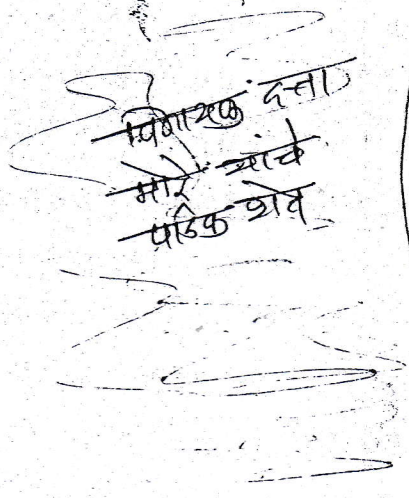 विनायक दत्ता
मोरे यांचे
पडिक शेत